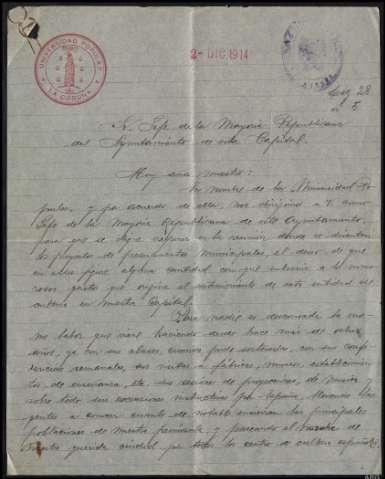 UNIVERSIDAD POPULAR
LA CORUÑA
2- DIC. 1914
Sr. Jefe de la Mayoria Republicana
del Ayuntamiento de esta Capital.
Muy señor nuestro:
En nombre de la Universidad Po-
pular, y por acuerdo de ella, nos dirigimos a V. como
Jefe de la Mayoria Republicana de este Ayuntamiento,
para que se digne exponer en la reunión donde se discutan
los proyectos de presupuestos municipales, el deseo de que
en ellos figure alguna cantidad con que
gastos que origina el sostenimiento de esta entidad
en nuestra Capital.
Para nadie es desconocida la
labor que viene haciendo desde hace más de ocho
años, ya con sus clases, con sus confe-
rencias semanales, sus visitas a fábricas, museos, establecimien-
tos de enseñanza, etc. sus veladas de
sobre todo sus excursiones instructivas por España, llevando
gentes a conocer cuanto de notable encierran las principales
poblaciones de nuestra peninsula, y paseando el nombre de
nuestra querida ciudad por todos los centros de cultura española